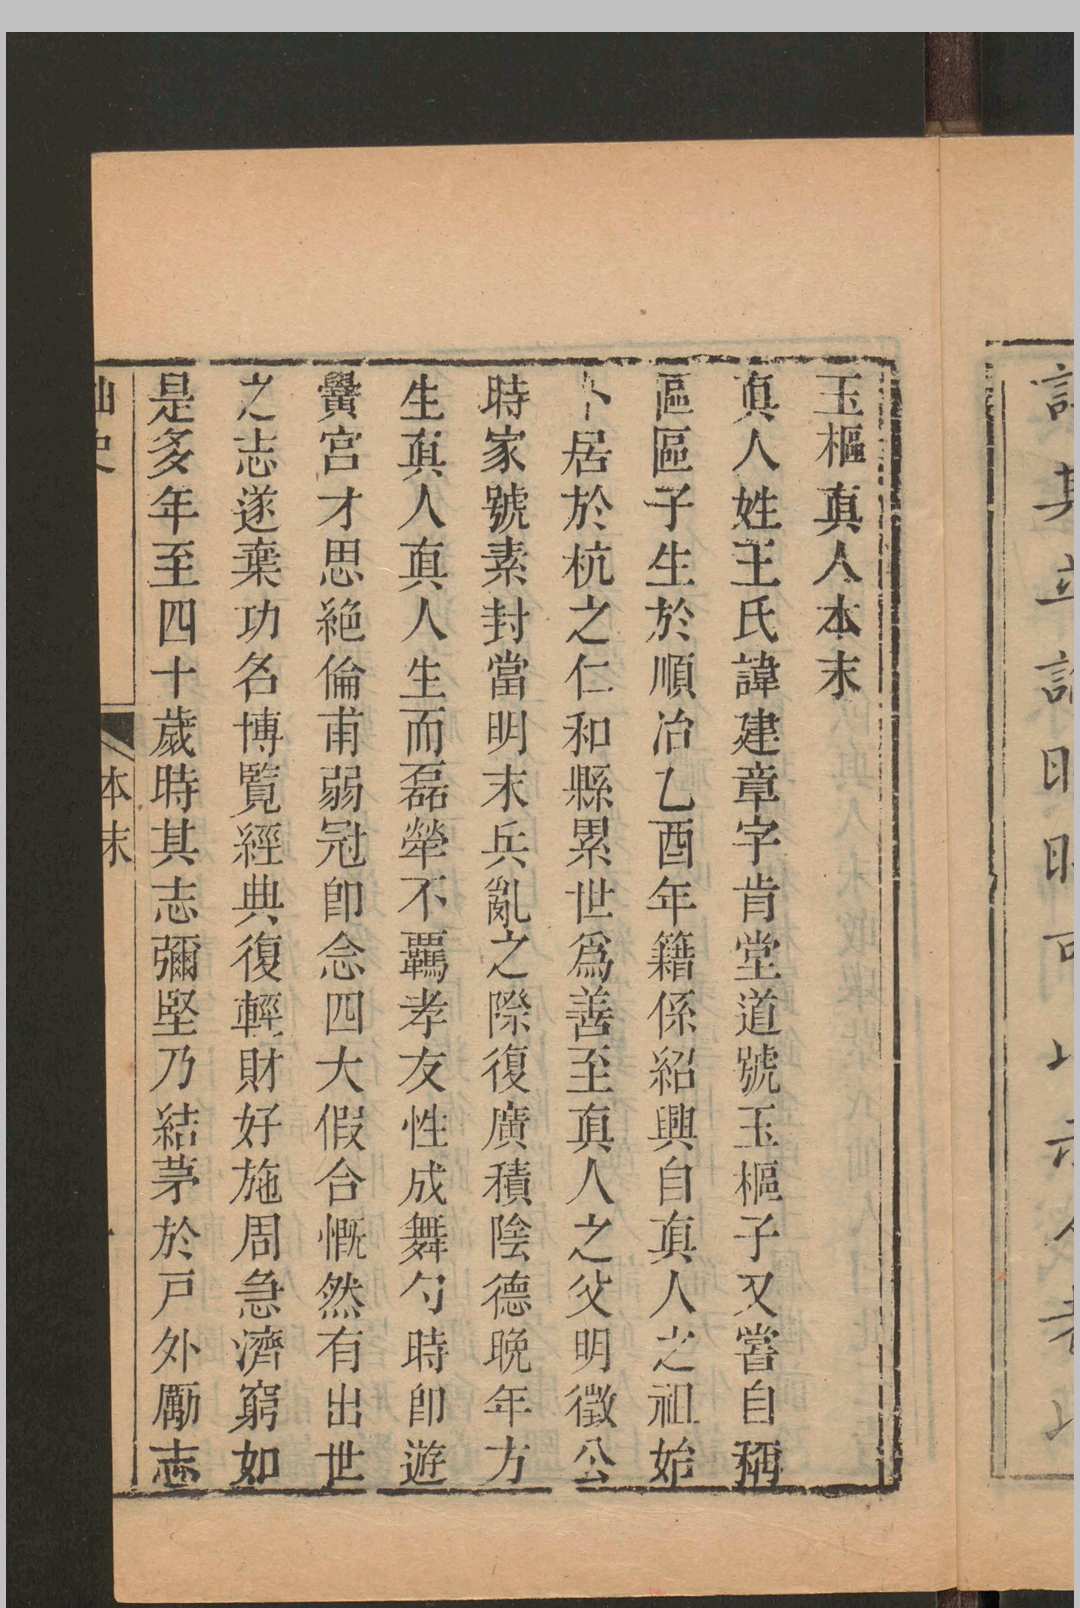 玉樞真人本末
真人姓王氏諱建章字肯堂道號玉樞子又嘗自稱
區區子生於順治乙酉年籍係紹興自真人之祖始
卜居於杭之仁和縣累世爲善至真人之父明徵公
時家號素封當明末兵亂之際復廣積陰德晚年方
生真人真人生而磊犖不羈孝友性成舞勺時卽遊
黌宮才思絕倫甫弱冠卽念四大假合慨然有出世
之志遂棄功名博覽經典復輕財好施周急濟窮如
是多年至四十歲時其志彌堅乃結茅於戸外勵志
仙史 本末